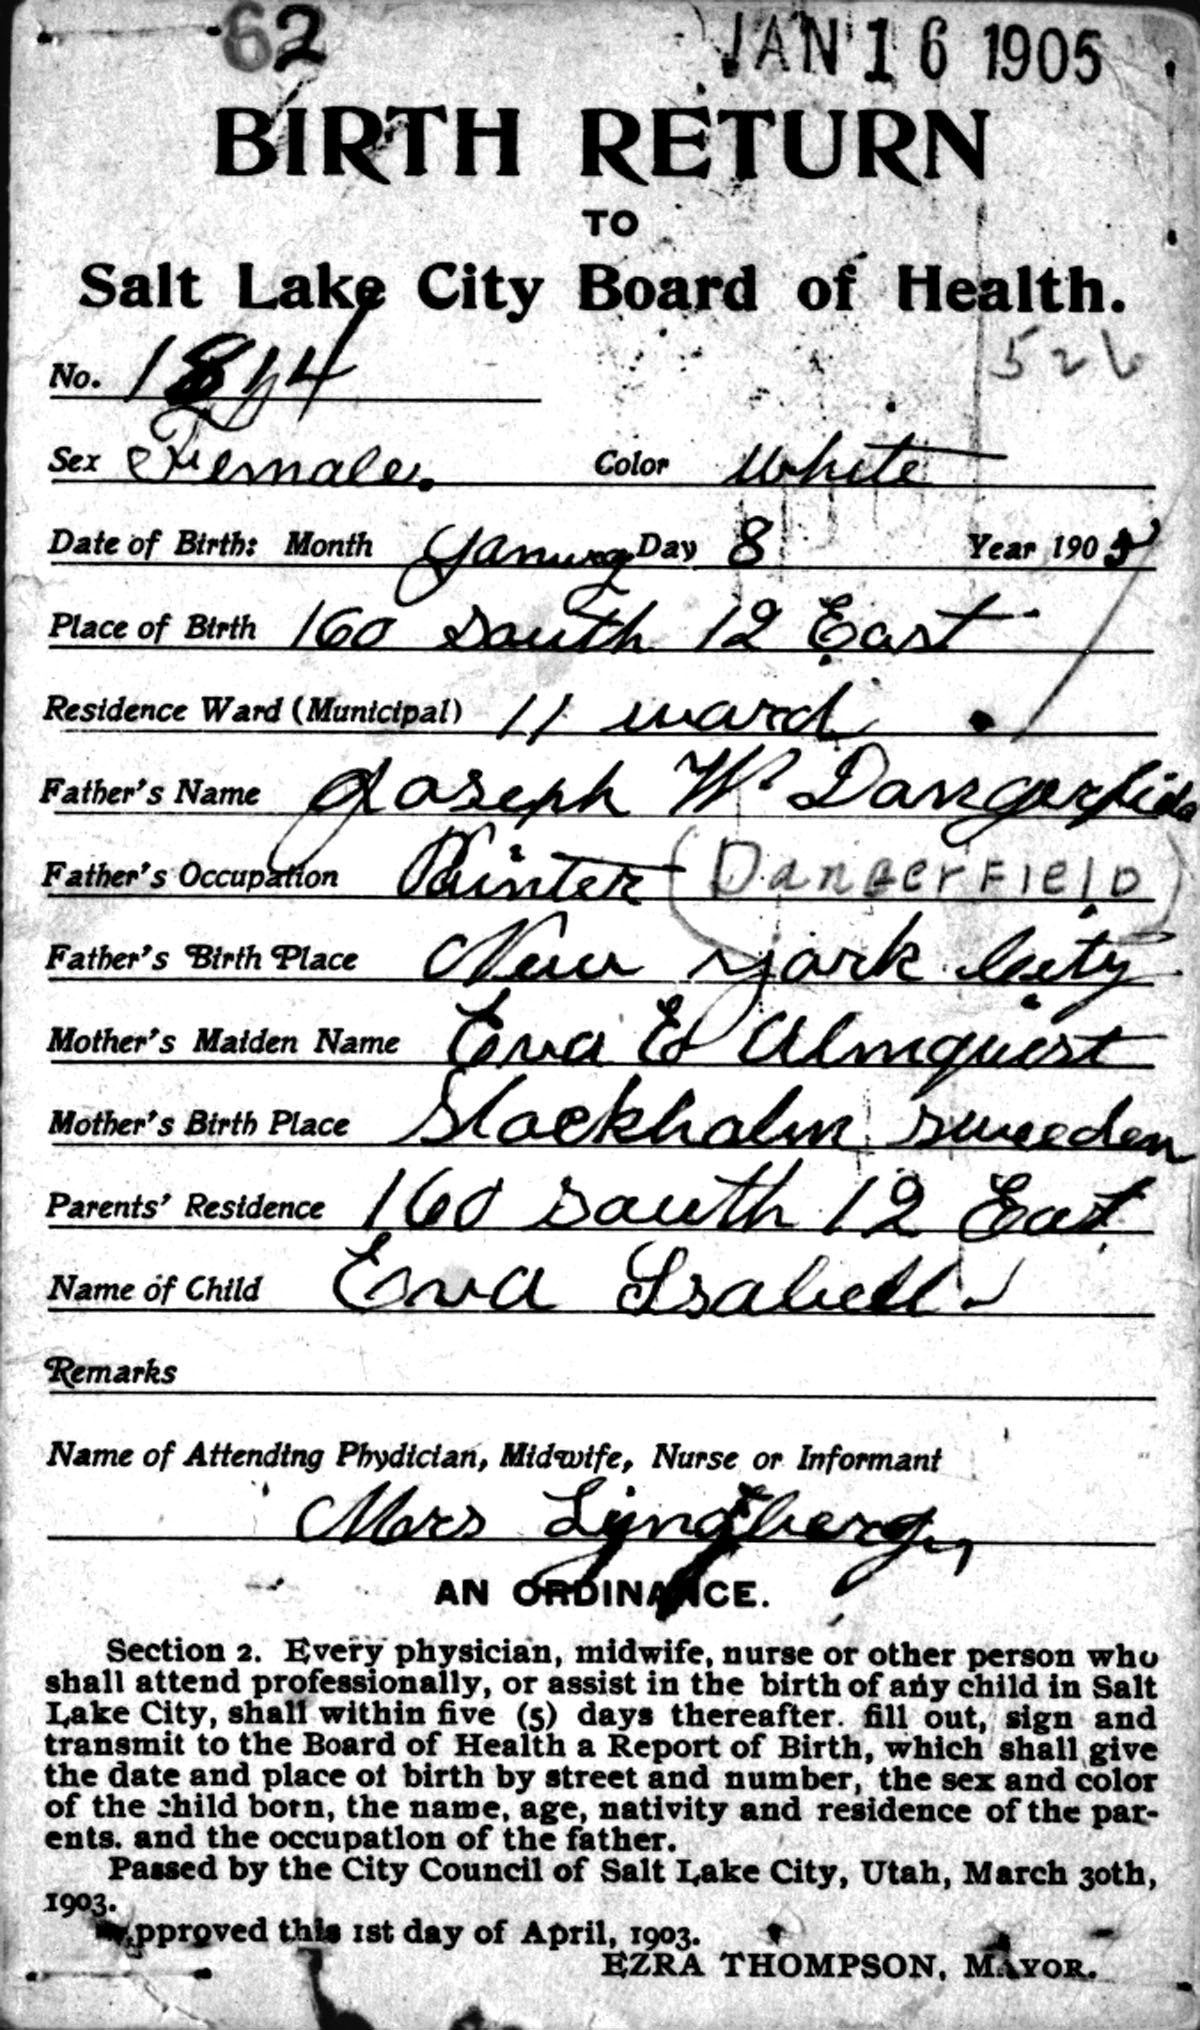 62 JAN 16 1905
BIRTH RETURN
TO
Salt Lake City Board of Health.
526
No. 1814
Sex Female. Color White
Date of Birth: Month Day 8 Year 1905
Place of Birth 160 South 12 East
Residence Ward (Municipal) 11 ward
Father's Name Joseph W. Dangerfield
Father's Occupation Painter (DANGERFIELD)
Father's Birth Place New York City
Mother's Maiden Name Eva E Almquist
Mother's Birth Place Stockholm Sweeden
Parents' Residence 160 South 12 East
Name of Child Eva Isabell
Remarks
Name of Attending Phydician, Midwife, Nurse or Informant
Mrs
AN ORDINANCE.
Section 2. Every physician, midwife, nurse or other person who
shall attend professionally, or assist in the birth of any child in Salt
Lake City, shall within five (5) days thereafter. fill out, sign and
transmit to the Board of Health a Report of Birth, which shall give
the date and place of birth by street and number, the sex and color
of the child born, the name, age, nativity and residence of the par-
ents. and the occupation of the father.
Passed by the City Council of Salt Lake City, Utah, March 30th,
1903.
Approved this 1st day of April, 1903.
EZRA THOMPSON, MAYOR.